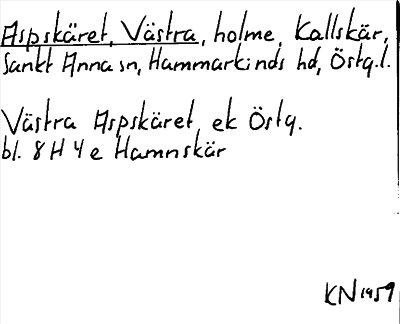 Aspskäret, Västra, holme, Kallskär,
Sankt Anna sn, Hammarkinds hd, Östg.l.
Västra Aspskäret, ek Östg.
bl. 8 H 4 e Hamnskär
KN 1959